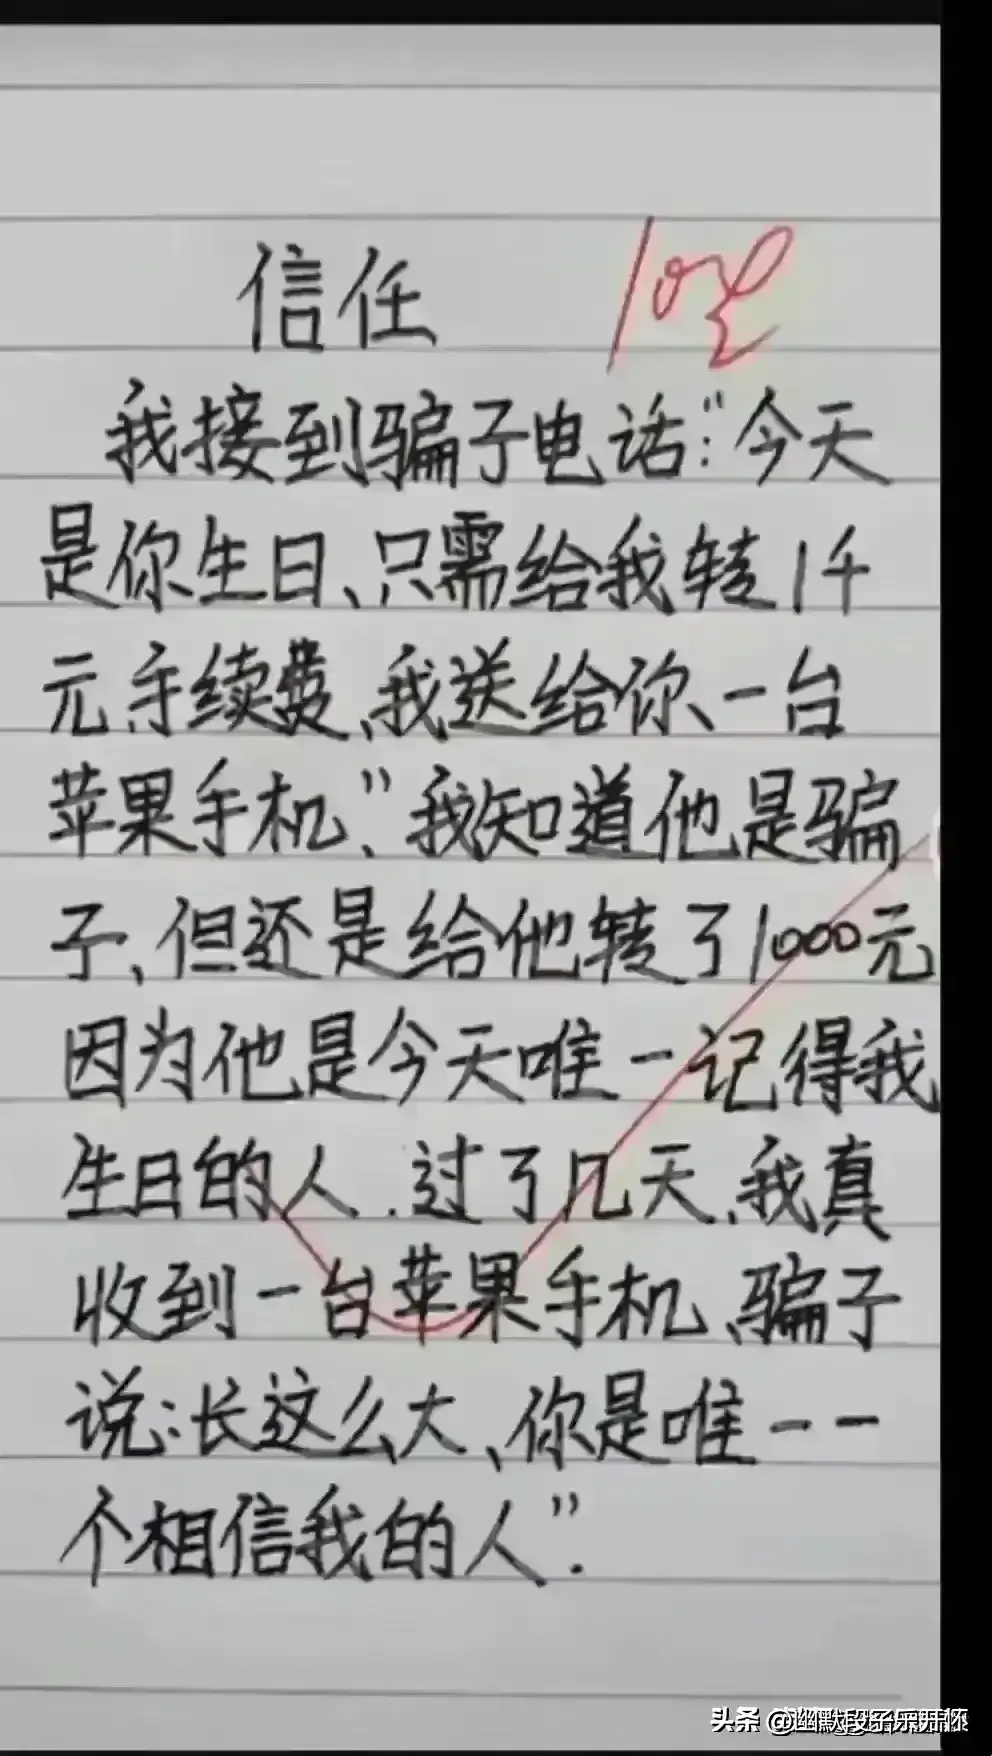 信任
我接到骗子电话:"今天
是你生日、只需给我转1千
元手续费、我送给你一台
苹果手机、"我知道他是骗
子、但还是给他转了1000元
因为他是今天唯一记得我
生日的人.过了几天、我真
收到一台苹果手机、骗子
说:长这么大、你是唯一一
个相信我的人".
头条 @幽默段子乐开怀